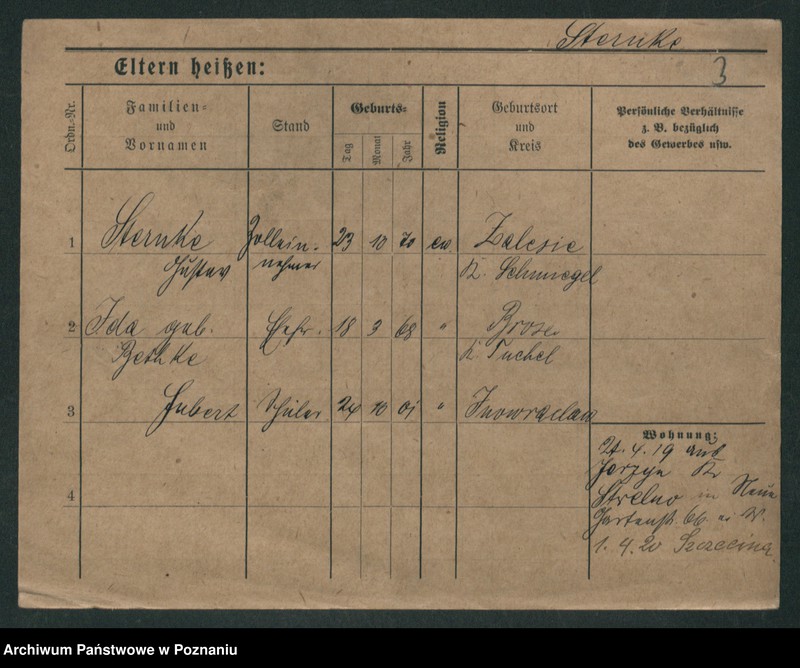 Sternke
3
Eltern heißen:
Ordn.-Nr.
Familien-
und
Vornamen
Stand
Geburts-
Tag
Monat
Jahr
Religion
Geburtsort
und
Kreis
Persönliche Verhältnisse
z. B. bezüglich
des Gewerbes usw.
1 Sternke Zollein- 23 10 70 ev. Zalesie
Gustav nehmer K. Schmiegel
2 Ida geb. Ehefr. 18 3 68 "
Bethke K. Tuchel
3 Hubert Schüler 24 10 01 " Inowraclaw
Wohnung:
4
24.4.19 aus
Kr
Strelno in Neue
Gartenstr. 66
1.4.20 Szczecina